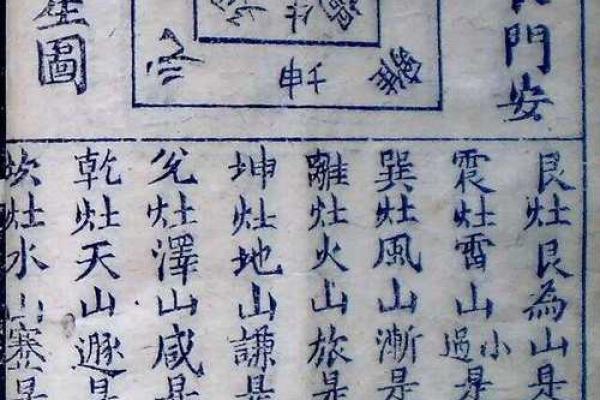 門安
圖
艮灶艮為山是
震灶雷山小過是
巽灶風山漸是
離灶火山旅是
坤灶地山謙是
兌灶澤山咸是
乾灶天山遯是
坎灶水山蹇是